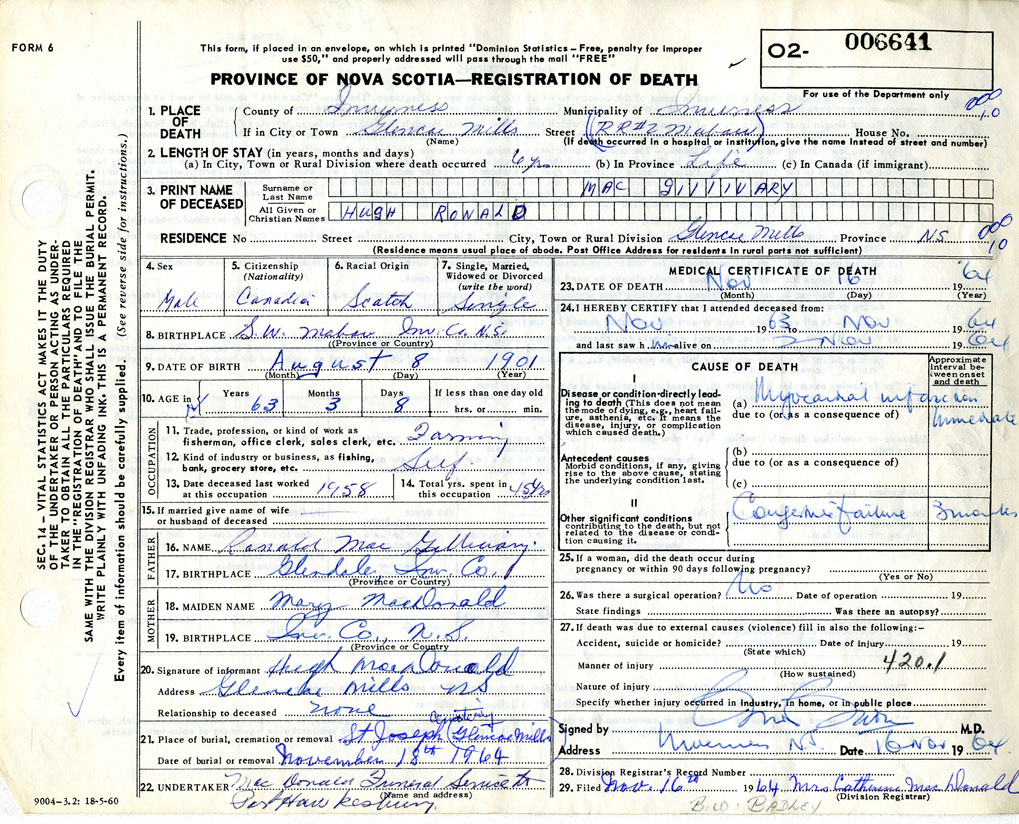 FORM 6
This form, if placed in an envelope, on which is printed "Dominion Statistics – Free, penalty for improper
use $50," and properly addressed will pass through the mail "FREE"
PROVINCE OF NOVA SCOTIA—REGISTRATION OF DEATH
O2- 006641
For use of the Department only
1. PLACE OF DEATH County of Inverness Municipality of Inverness
If in City or Town Glencoe Mills (Name) Street (RR#2 Mabou) House No.
(If death occurred in a hospital or institution, give the name instead of street and number)
000
10
2. LENGTH OF STAY (in years, months and days)
(a) In City, Town or Rural Division where death occurred 6 yrs (b) In Province Life (c) In Canada (if immigrant)
3. PRINT NAME OF DECEASED
Surname or Last Name MAC GILLIVARY
All Given or Christian Names HUGH RONALD
RESIDENCE No Street City, Town or Rural Division Glencoe Mills Province NS
(Residence means usual place of abode. Post Office Address for residents in rural parts not sufficient)
000
10
4. Sex Male
5. Citizenship (Nationality) Canadian
6. Racial Origin Scotch
7. Single, Married, Widowed or Divorced (write the word) Single
8. BIRTHPLACE S.W. Mabou Inv. Co. N.S.
(Province or Country)
9. DATE OF BIRTH August 8 1901
(Month) (Day) (Year)
10. AGE in Years 63 Months 3 Days 8 If less than one day old hrs. or min.
OCCUPATION
11. Trade, profession, or kind of work as
fisherman, office clerk, sales clerk, etc. Farming
12. Kind of industry or business, as fishing,
bank, grocery store, etc. Self.
13. Date deceased last worked at this occupation 1958
14. Total yrs. spent in this occupation 45 yrs
15. If married give name of wife
or husband of deceased
FATHER
16. NAME Ronald Mac Gillivary
17. BIRTHPLACE Glendale, Inv. Co.
(Province or Country)
MOTHER
18. MAIDEN NAME Mary MacDonald
19. BIRTHPLACE Inv. Co., N.S.
(Province or Country)
20. Signature of informant Hugh MacDonald
Address Glencoe Mills NS
Relationship to deceased none
21. Place of burial, cremation or removal St Joseph Cemetery Glencoe Mills
Date of burial or removal November 18th 1964
22. UNDERTAKER Mac Donald Funeral Service
(Name and address)
Port Hawkesbury.
9004-3.2: 18-5-60
MEDICAL CERTIFICATE OF DEATH
23. DATE OF DEATH Nov 16 1964
(Month) (Day) (Year)
24. I HEREBY CERTIFY that I attended deceased from:
Nov 1963 to Nov 1964
and last saw him alive on 2 Nov 1964
CAUSE OF DEATH
Approximate interval between onset and death
I
Disease or condition directly leading to death (This does not mean the mode of dying, e.g., heart failure, asthenia, etc. It means the disease, injury, or complication which caused death.)
(a) Myocardial infarction immediate
due to (or as a consequence of)
Antecedent causes
Morbid conditions, if any, giving rise to the above cause, stating the underlying condition last.
(b)
due to (or as a consequence of)
(c)
II
Other significant conditions
contributing to the death, but not related to the disease or condition causing it.
Congestive failure 3 months
25. If a woman, did the death occur during
pregnancy or within 90 days following pregnancy?
(Yes or No)
26. Was there a surgical operation? No Date of operation 19
State findings Was there an autopsy?
27. If death was due to external causes (violence) fill in also the following:-
Accident, suicide or homicide? Date of injury 19
(State which)
Manner of injury 420.1
(How sustained)
Nature of injury
Specify whether injury occurred in industry, in home, or in public place
Signed by M.D.
Address Inverness N.S. Date 16 Nov 1964
28. Division Registrar's Record Number
29. Filed Nov. 16th 1964 Mrs Catherine Mac Donald
(Division Registrar)
B.W. BADLEY
SEC. 14 – VITAL STATISTICS ACT MAKES IT THE DUTY
OF THE UNDERTAKER OR PERSON ACTING AS UNDER-
TAKER TO OBTAIN ALL THE PARTICULARS REQUIRED
IN THE "REGISTRATION OF DEATH" AND TO FILE THE
SAME WITH THE DIVISION REGISTRAR WHO SHALL ISSUE THE BURIAL PERMIT.
WRITE PLAINLY WITH UNFADING INK. THIS IS A PERMANENT RECORD.
Every item of information should be carefully supplied. (See reverse side for instructions.)